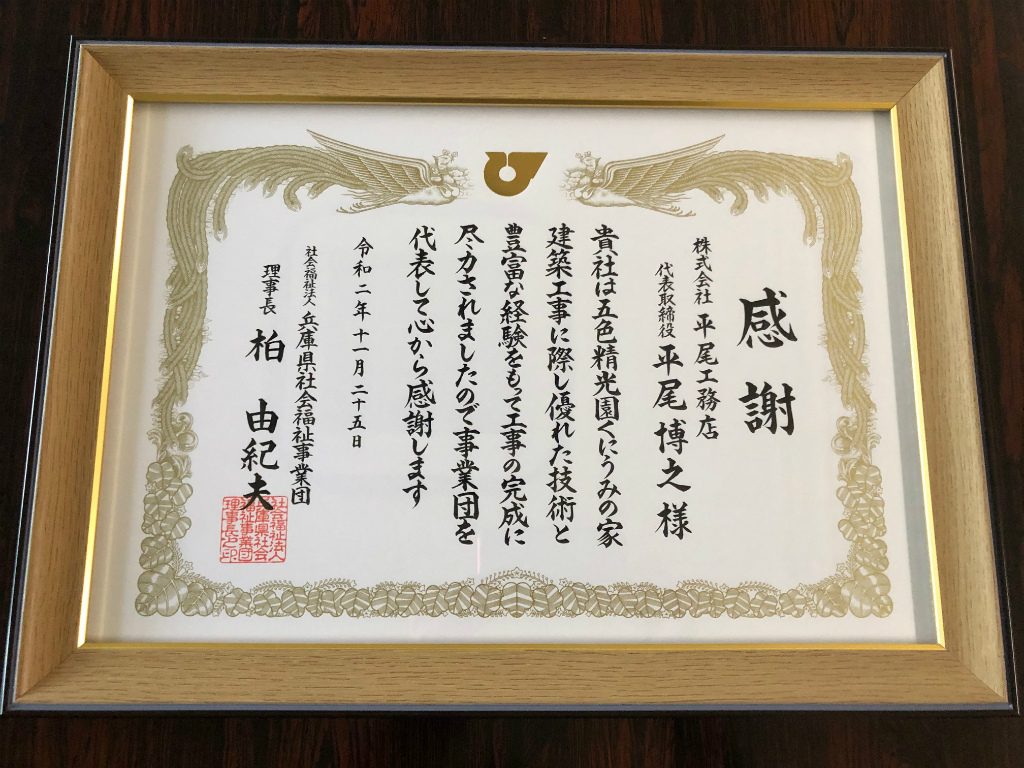 感謝
株式会社 平尾工務店
代表取締役 平尾博之様
貴社は五色精光園くにうみの家
建築工事に際し優れた技術と
豊富な経験をもって工事の完成に
尽力されましたので事業団を
代表して心から感謝します
令和二年十一月二十五日
社会福祉法人 兵庫県社会福祉事業団
理事長 柏 由紀夫
社会福祉法人
兵庫県社会
福祉事業団
理事長之印